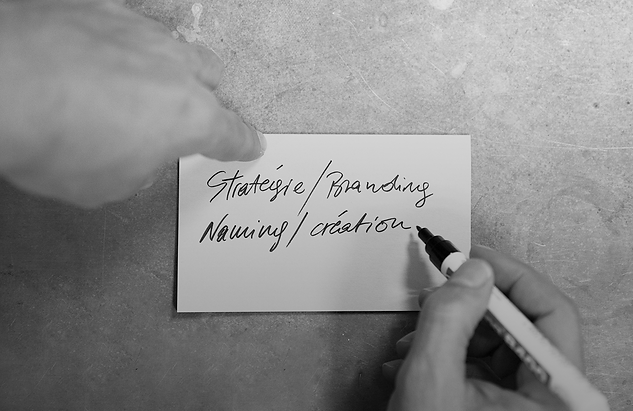 Stratégie/Branding
Naming/création